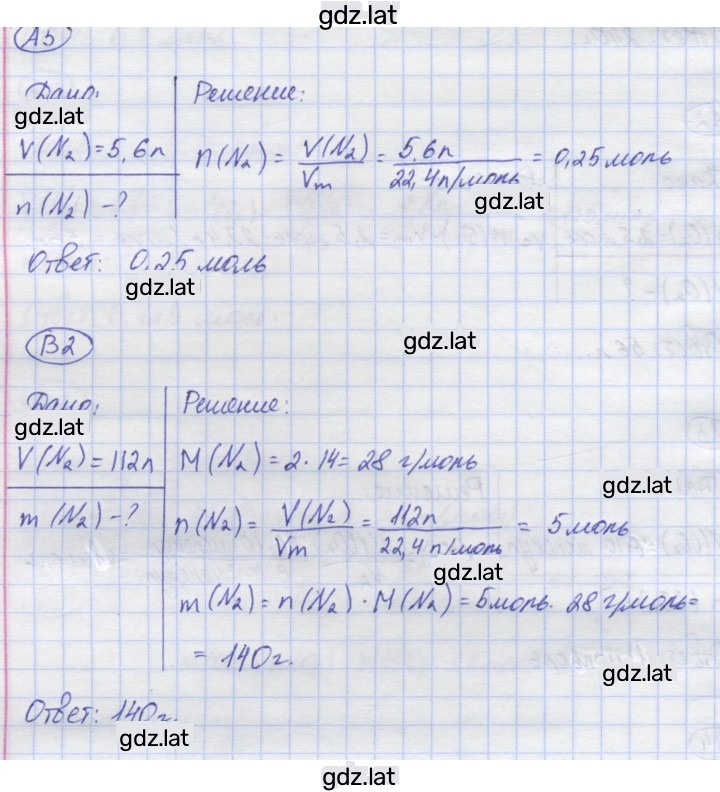 gdz.lat
А5
Дано: Решение:
gdz.lat
V(N₂)=5,6л n(N₂) = V(N₂)/Vm = 5,6л/22,4л/моль = 0,25моль
gdz.lat
n(N₂) -?
Ответ: 0,25 моль
gdz.lat
В2
gdz.lat
Дано: Решение:
gdz.lat
V(N₂)=112л M(N₂) = 2·14= 28 г/моль
gdz.lat
m(N₂)-? n(N₂)= V(N₂)/Vm = 112л/22,4л/моль = 5моль
gdz.lat
m(N₂)= n(N₂)·M(N₂)=5моль·28г/моль=
= 140г.
gdz.lat
Ответ: 140г.
gdz.lat
gdz.lat